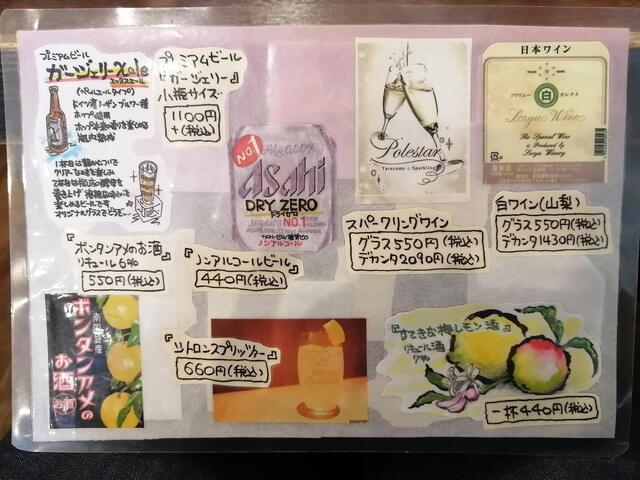 プレミアムビール
ガージェリーXale
エックスエール
(ペールエールタイプ)
プレミアムビール
『ガージェリー』
小瓶サイズ
1100円
+(税込)
NO.1
Alc.0.00%
Asahi
DRY ZERO
ドライゼロ
NO.1
カロリーゼロ/糖質ゼロ
ノンアルコール
Polestar
Taruzume Sparkling
日本ワイン
ソリューセレクト
白
Soryu Wine
The Special Wine
is Produced by
Soryu Winery
『ボンタンアメのお酒』
リキュール6%
550円(税込)
『ノンアルコールビール』
440円(税込)
スパークリングワイン
グラス550円(税込)
デカンタ2090円(税込)
白ワイン(山梨)
グラス550円(税込)
デカンタ1430円(税込)
南国特産
ボンタンアメの
お酒
『シトロンスプリッツァー』
660円(税込)
『すてきな梅レモン酒』
リキュール酒
7%
一杯440円(税込)